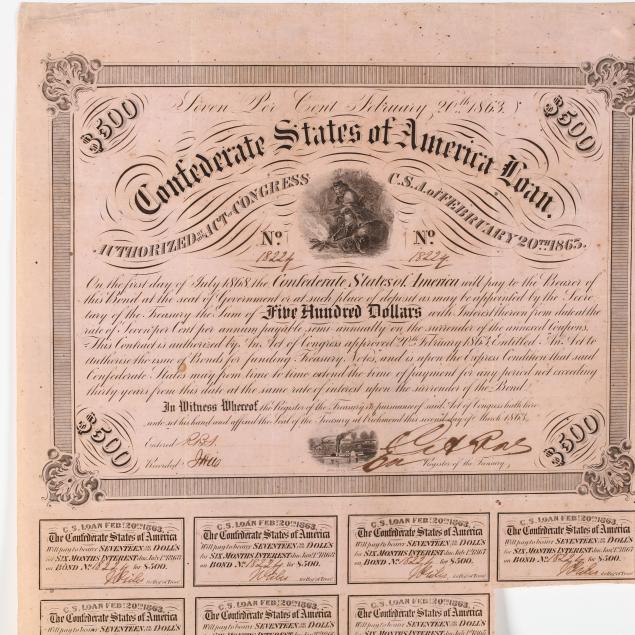 $500
$500
Seven Per Cent February 20th 1863.
Confederate States of America Loan.
AUTHORIZED BY ACT OF CONGRESS
C.S.A. of FEBRUARY 20TH 1863.
No
No
On the first day of July 1868, the Confederate States of America will pay to the Bearer of
this Bond at the seat of Government or at such place of deposit as may be appointed by the Secre-
tary of the Treasury the Sum of Five Hundred Dollars with Interest thereon from date at the
rate of Seven per Cent per annum payable semi-annually on the surrender of the annexed Coupons.
This Contract is authorised by An Act of Congress approved 20th February 1863, Entitled "An Act to
authorise the issue of Bonds for funding Treasury Notes, and is upon the Express Condition that said
Confederate States may from time to time extend the time of payment for any period not exceeding
thirty years from this date at the same rate of interest upon the surrender of the Bond.
In Witness Whereof, the Register of the Treasury in pursuance of said Act of Congress hath here-
unto set his hand and affixed the Seal of the Treasury at Richmond this second day of March 1863.
$500
$500
Entered
Recorded
Register of the Treasury
C.S. LOAN FEB: 20TH 1863.
The Confederate States of America
Will pay to bearer SEVENTEEN DOLLS
for SIX MONTHS INTEREST due
on BOND No for $500.
C.S. LOAN FEB: 20TH 1863.
The Confederate States of America
Will pay to bearer SEVENTEEN DOLLS
for SIX MONTHS INTEREST due
on BOND No for $500.
C.S. LOAN FEB: 20TH 1863.
The Confederate States of America
Will pay to bearer SEVENTEEN DOLLS
for SIX MONTHS INTEREST due
on BOND No for $500.
C.S. LOAN FEB: 20TH 1863.
The Confederate States of America
Will pay to bearer SEVENTEEN DOLLS
for SIX MONTHS INTEREST due
on BOND No for $500.
C.S. LOAN FEB: 20TH 1863.
The Confederate States of America
Will pay to bearer SEVENTEEN DOLLS
C.S. LOAN FEB: 20TH 1863.
The Confederate States of America
Will pay to bearer SEVENTEEN DOLLS
C.S. LOAN FEB: 20TH 1863.
The Confederate States of America
Will pay to bearer SEVENTEEN DOLLS